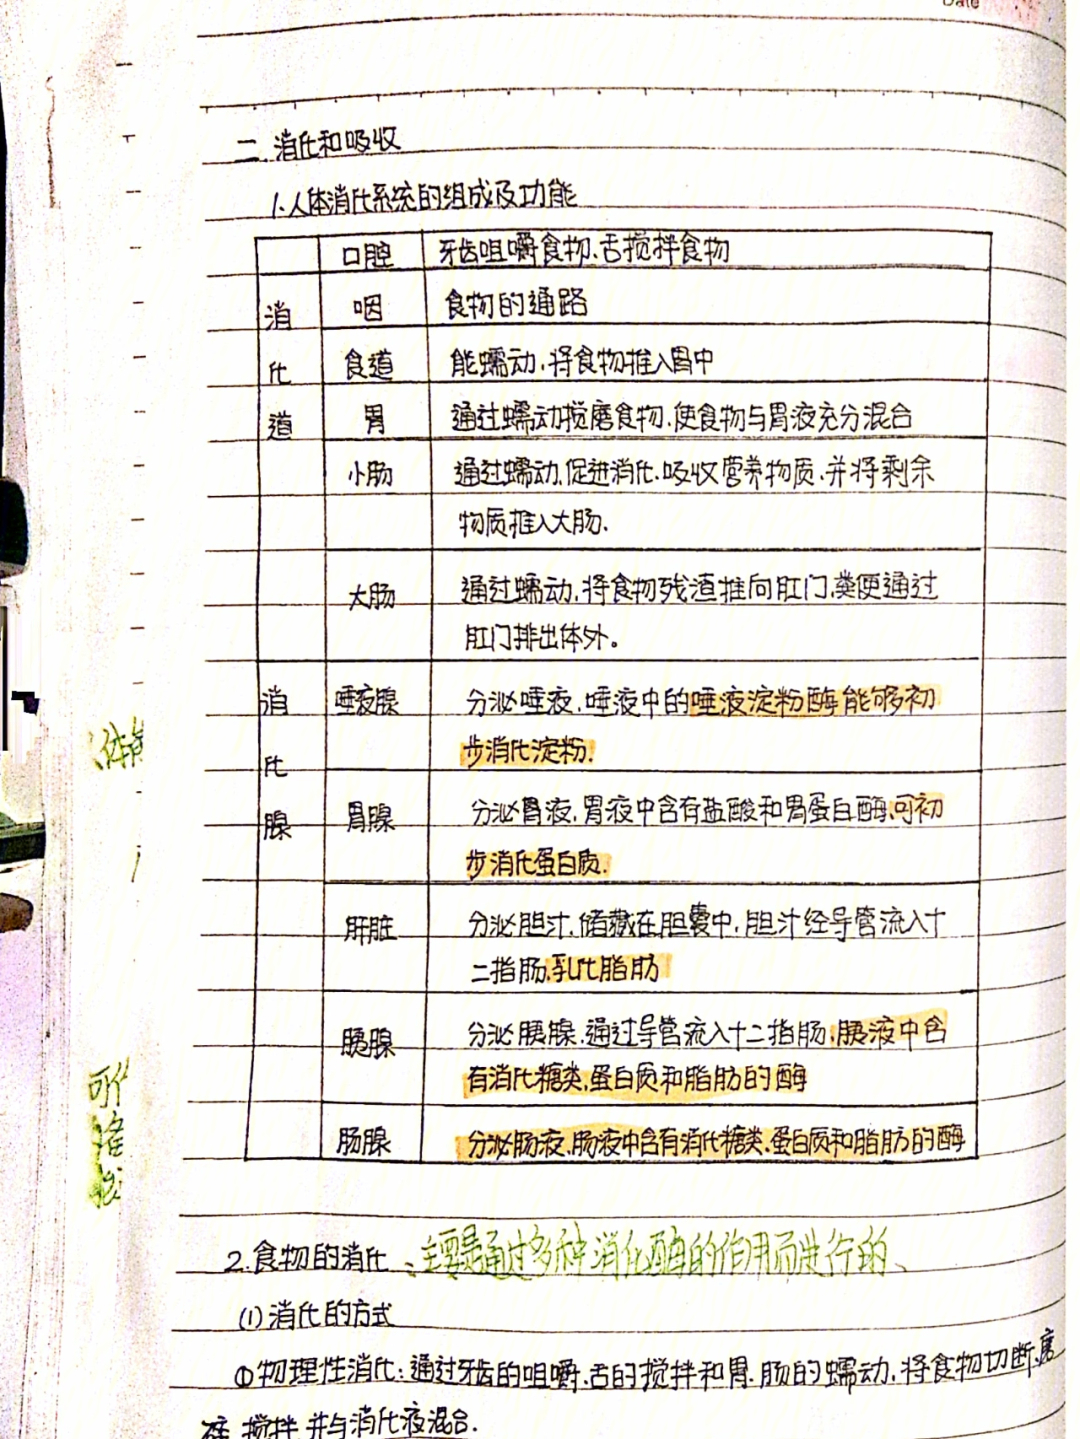 Date
二、消化和吸收
1.人体消化系统的组成及功能
消化道
口腔 牙齿咀嚼食物、舌搅拌食物
咽 食物的通路
食道 能蠕动,将食物推入胃中
胃 通过蠕动搅磨食物,使食物与胃液充分混合
小肠 通过蠕动,促进消化.吸收营养物质,并将剩余
物质推入大肠.
大肠 通过蠕动,将食物残渣推向肛门,粪便通过
肛门排出体外。
消化腺
唾液腺 分泌唾液,唾液中的唾液淀粉酶能够初
步消化淀粉.
胃腺 分泌胃液,胃液中含有盐酸和胃蛋白酶,可初
步消化蛋白质.
肝脏 分泌胆汁,储藏在胆囊中,胆汁经导管流入十
二指肠,乳化脂肪
胰腺 分泌胰腺,通过导管流入十二指肠,胰液中含
有消化糖类,蛋白质和脂肪的酶
肠腺 分泌肠液,肠液中含有消化糖类,蛋白质和脂肪的酶
2.食物的消化、主要是通过多种消化酶的作用而进行的、
(1)消化的方式
①物理性消化:通过牙齿的咀嚼、舌的搅拌和胃.肠的蠕动,将食物切断,磨
碎,搅拌,并与消化液混合.